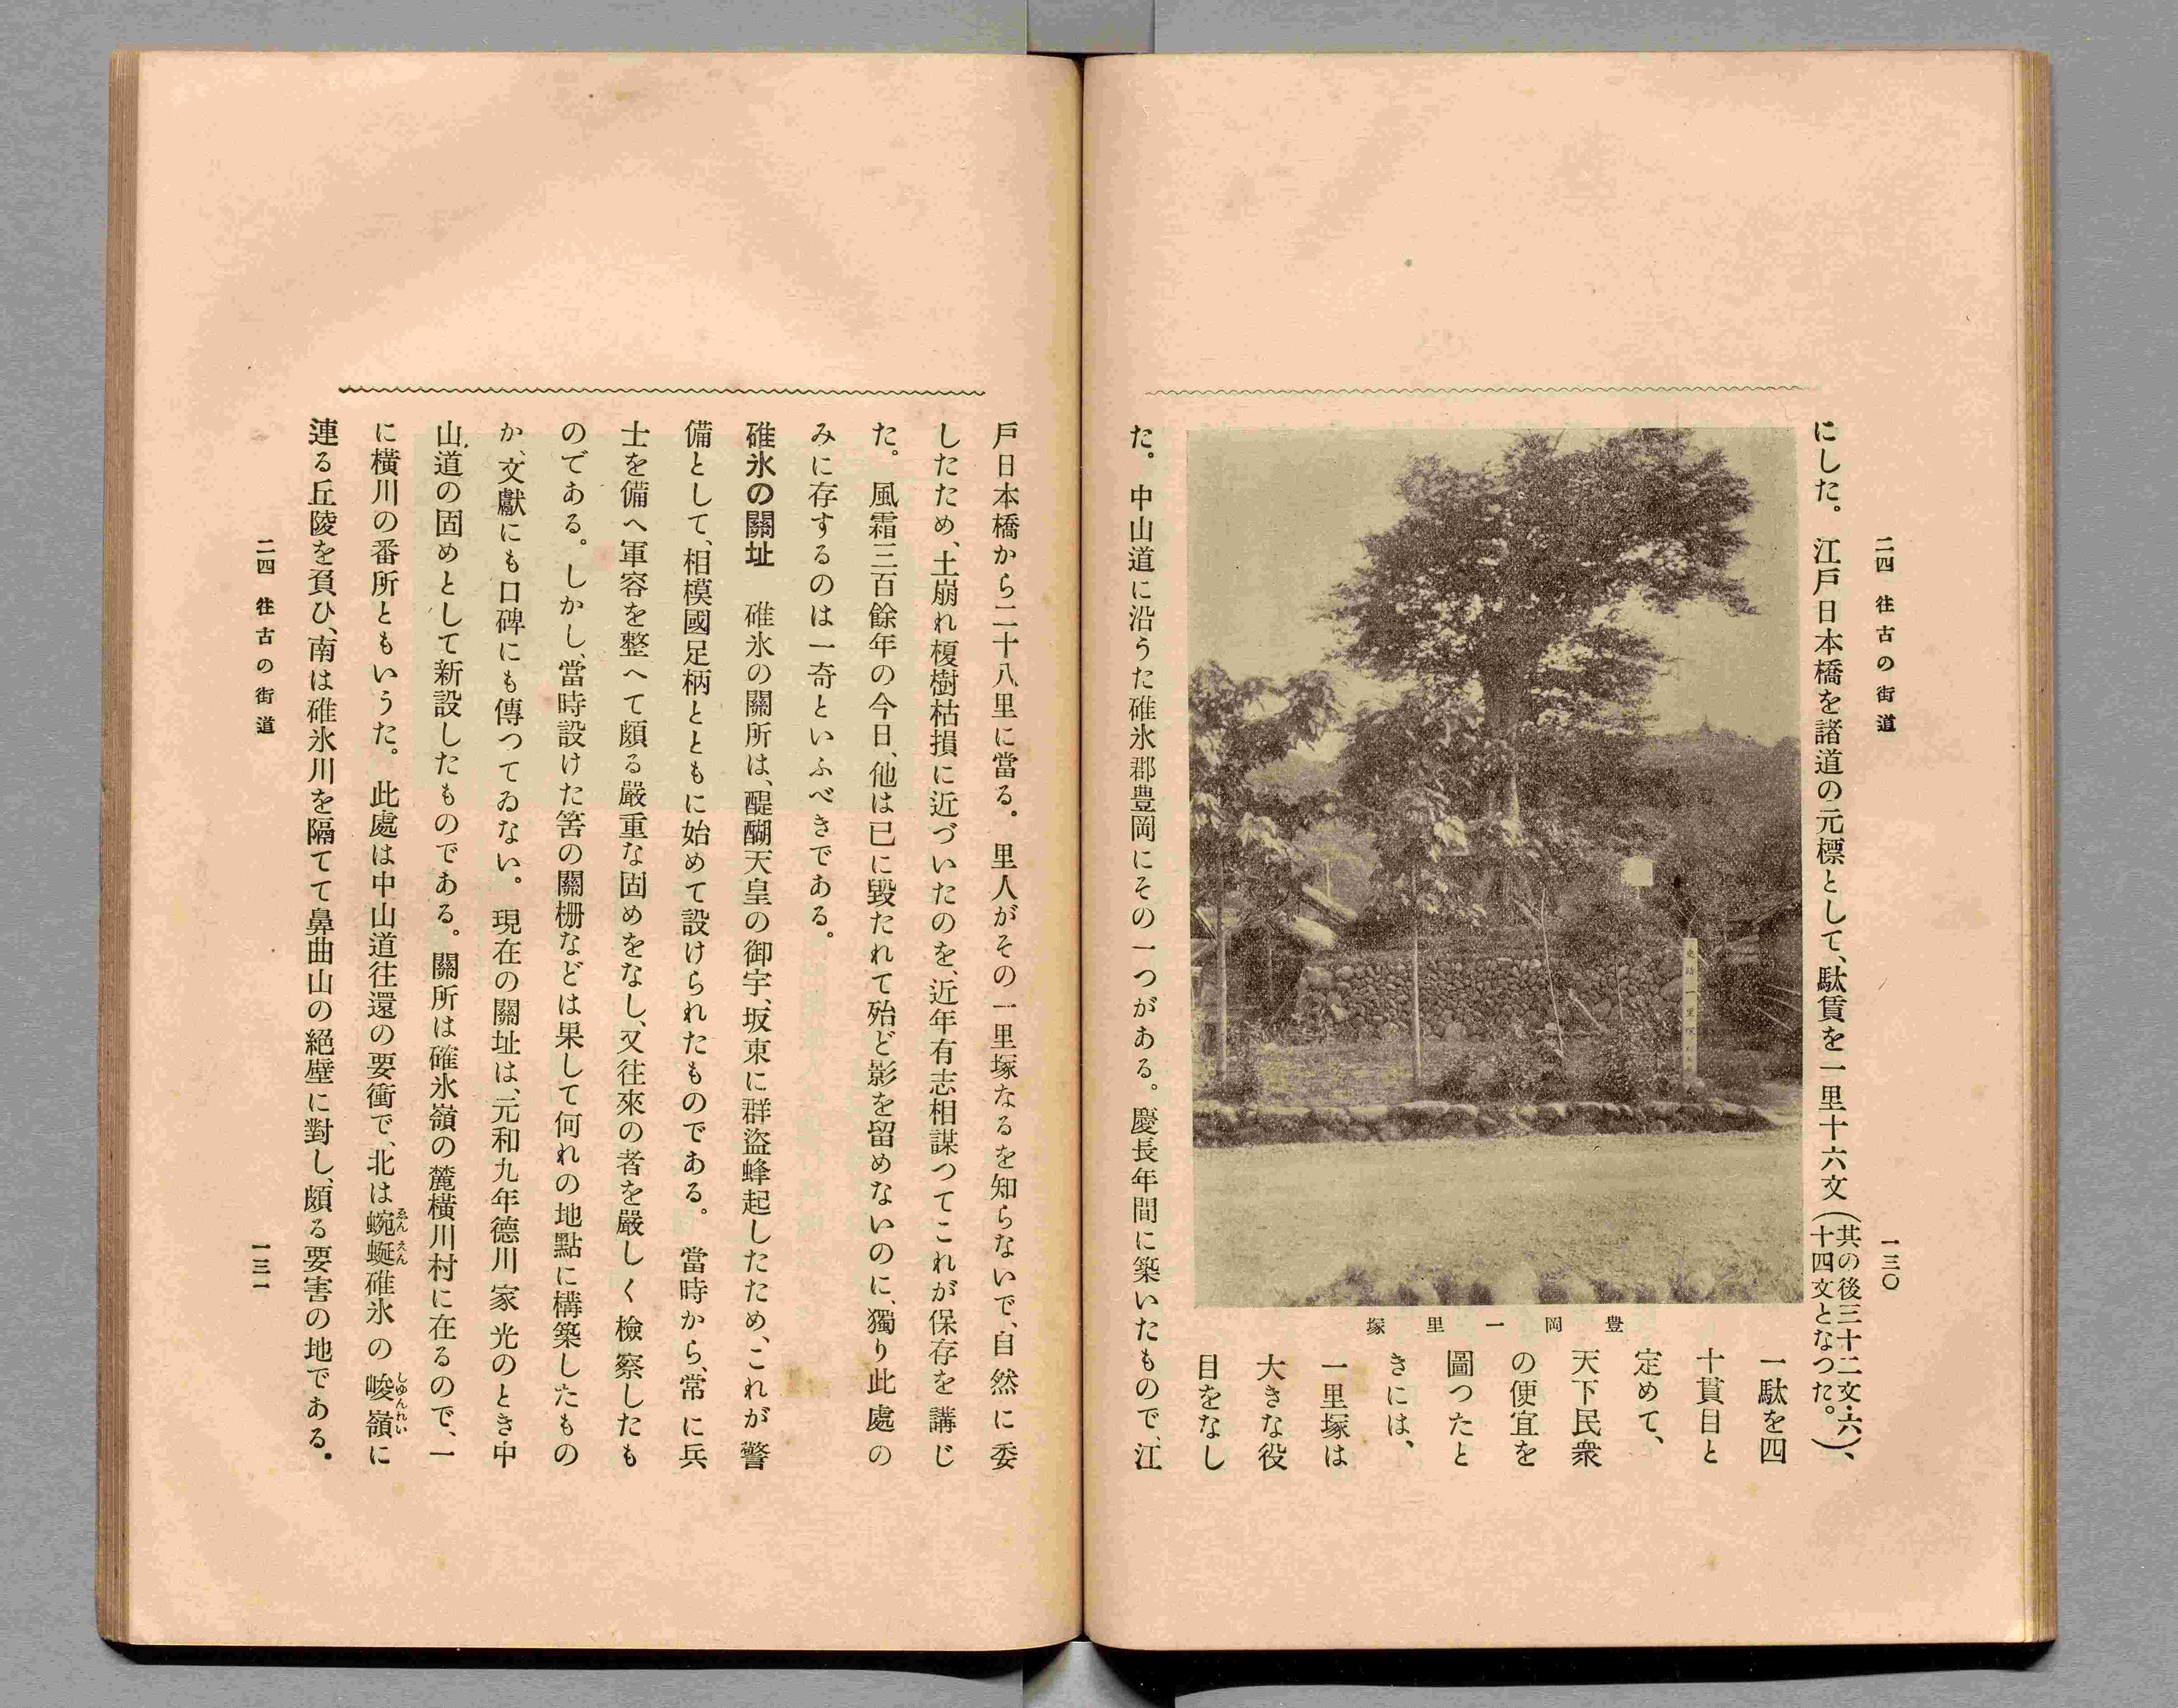 二四 往古の街道
一三〇
にした。江戸日本橋を諸道の元標として、駄賃を一里十六文(其の後三十二文・六十四文となつた。)、
一駄を四
十貫目と
定めて、
天下民衆
の便宜を
圖つたと
きには、
一里塚は
大きな役
目をなし
豊岡一里塚
た。中山道に沿うた碓氷郡豊岡にその一つがある。慶長年間に築いたもので、江
戸日本橋から二十八里に當る。里人がその一里塚なるを知らないで、自然に委
したため、土崩れ榎樹枯損に近づいたのを、近年有志相謀つてこれが保存を講じ
た。風霜三百餘年の今日、他は已に毀たれて殆ど影を留めないのに、獨り此處の
みに存するのは一奇といふべきである。
碓氷の關址 碓氷の關所は、醍醐天皇の御宇、坂東に群盜蜂起したため、これが警
備として、相模國足柄とともに始めて設けられたものである。當時から、常に兵
士を備へ軍容を整へて頗る嚴重な固めをなし、又往來の者を嚴しく檢察したも
のである。しかし、當時設けた筈の關柵などは果して何れの地點に構築したもの
か、文獻にも口碑にも傳つてゐない。現在の關址は、元和九年德川家光のとき中
山道の固めとして新設したものである。關所は碓氷嶺の麓橫川村に在るので、一
に橫川の番所ともいうた。此處は中山道往還の要衝で、北は蜿蜒碓氷の峻嶺に
ゑんえん
しゆんれい
連る丘陵を負ひ、南は碓氷川を隔てて鼻曲山の絕壁に對し、頗る要害の地である。
二四 往古の街道
一三一